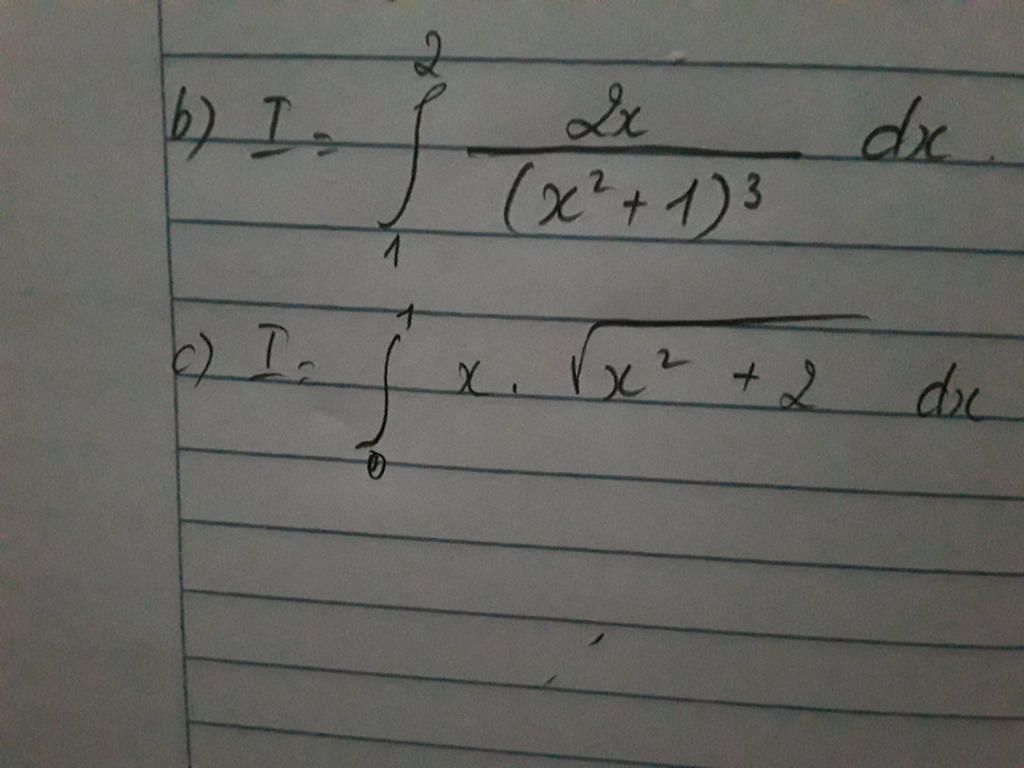 b) I = ∫₁² 2x / (x² + 1)³ dx.
c) I = ∫₀¹ x. √(x² + 2) dx